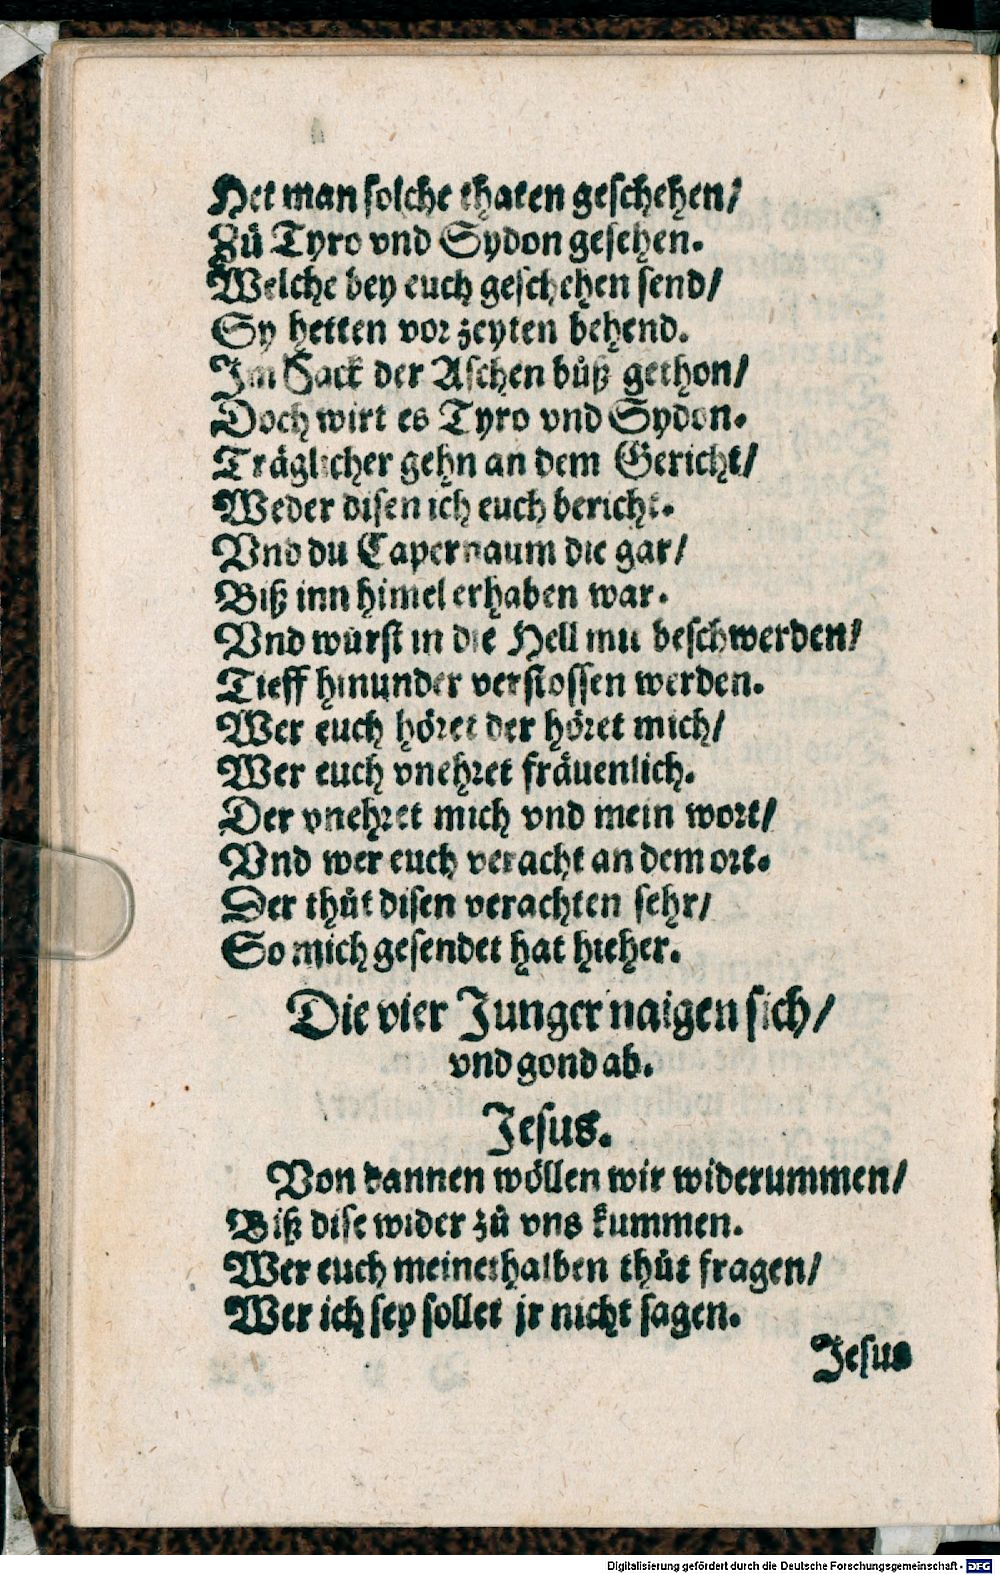 Het man solche thaten geschehen/
Zů Tyro vnd Sydon gesehen.
Welche bey euch geschehen send/
Sy hetten vor zeyten behend.
Im Sack der Aschen bůß gethon/
Doch wirt es Tyro vnd Sydon.
Träglicher gehn an dem Gericht/
Weder disen ich euch bericht.
Vnd du Capernaum die gar/
Biß inn himel erhaben war.
Vnd würst in die Hell mit beschwerden/
Tieff hinunder verstossen werden.
Wer euch höret der höret mich/
Wer euch vnehret fräuenlich.
Der vnehret mich vnd mein wort/
Vnd wer euch veracht an dem ort.
Der thůt disen verachten sehr/
So mich gesendet hat hieher.
Die vier Junger naigen sich/
vnd gond ab.
Jesus.
Von dannen wöllen wir widerummen/
Biß dise wider zů vns kummen.
Wer euch meinethalben thůt fragen/
Wer ich sey sollet jr nicht sagen.
Jesus
Digitalisierung gefördert durch die Deutsche Forschungsgemeinschaft - DFG